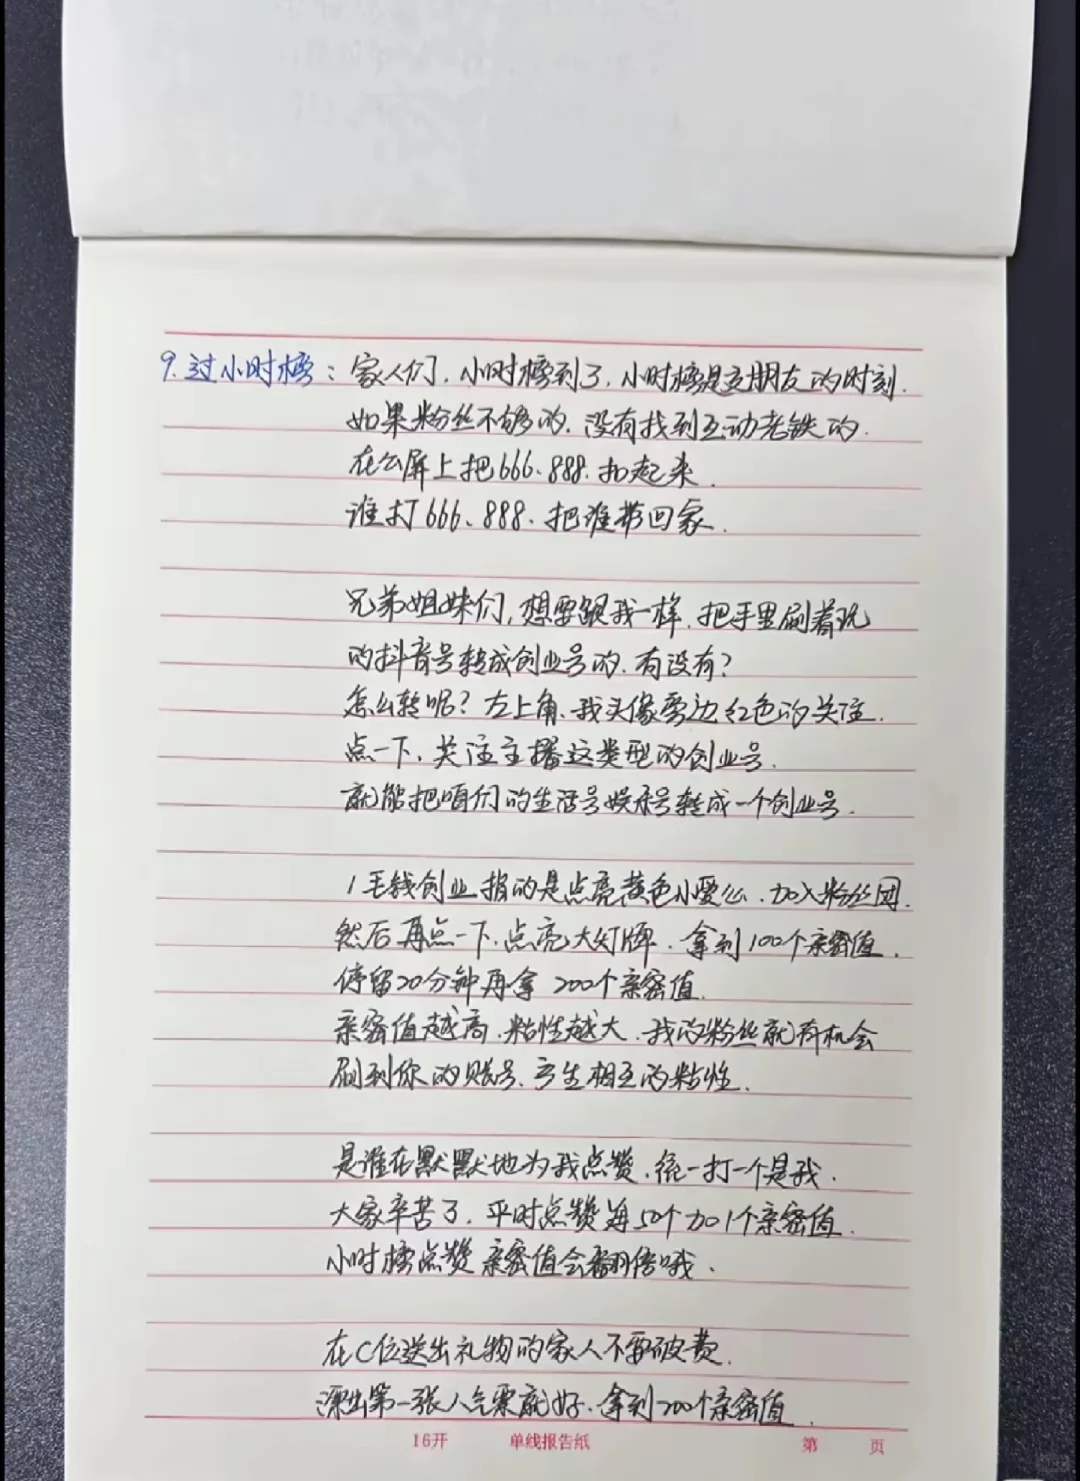 9.过小时榜：家人们，小时榜到了，小时榜是交朋友的时刻.
如果粉丝不够的.没有找到互动老铁的.
在公屏上把666、888.扣起来.
谁打666、888、把谁带回家.
兄弟姐妹们,想要跟我一样.把手里刷着玩
的抖音号转成创业号的.有没有?
怎么转呢?左上角、我头像旁边红色的关注.
点一下、关注主播这类型的创业号.
就能把咱们的生活号娱乐号转成一个创业号.
1毛钱创业指的是点亮黄色小爱心.加入粉丝团.
然后再点一下.点亮大灯牌.拿到100个亲密值.
停留20分钟再拿200个亲密值.
亲密值越高.粘性越大.我的粉丝就有机会
刷到你的账号、产生相互的粘性.
是谁在默默地为我点赞.统一打一个是我.
大家辛苦了.平时点赞每50个加1个亲密值.
小时榜点赞亲密值会翻倍哦.
在C位送出礼物的家人不要破费.
漂出第一张人气票就好.拿到200个亲密值.
16开 单线报告纸 第 页